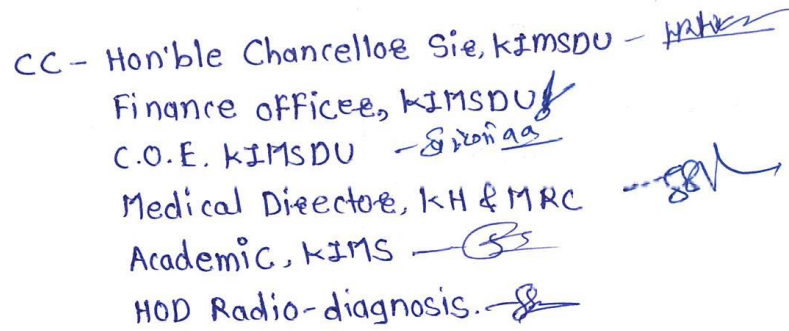 CC - Hon'ble Chancellor Sir, KIMSDU -
Finance officer, KIMSDU
C.O.E. KIMSDU -
Medical Director, KH & MRC
Academic, KIMS -
HOD Radio-diagnosis. -